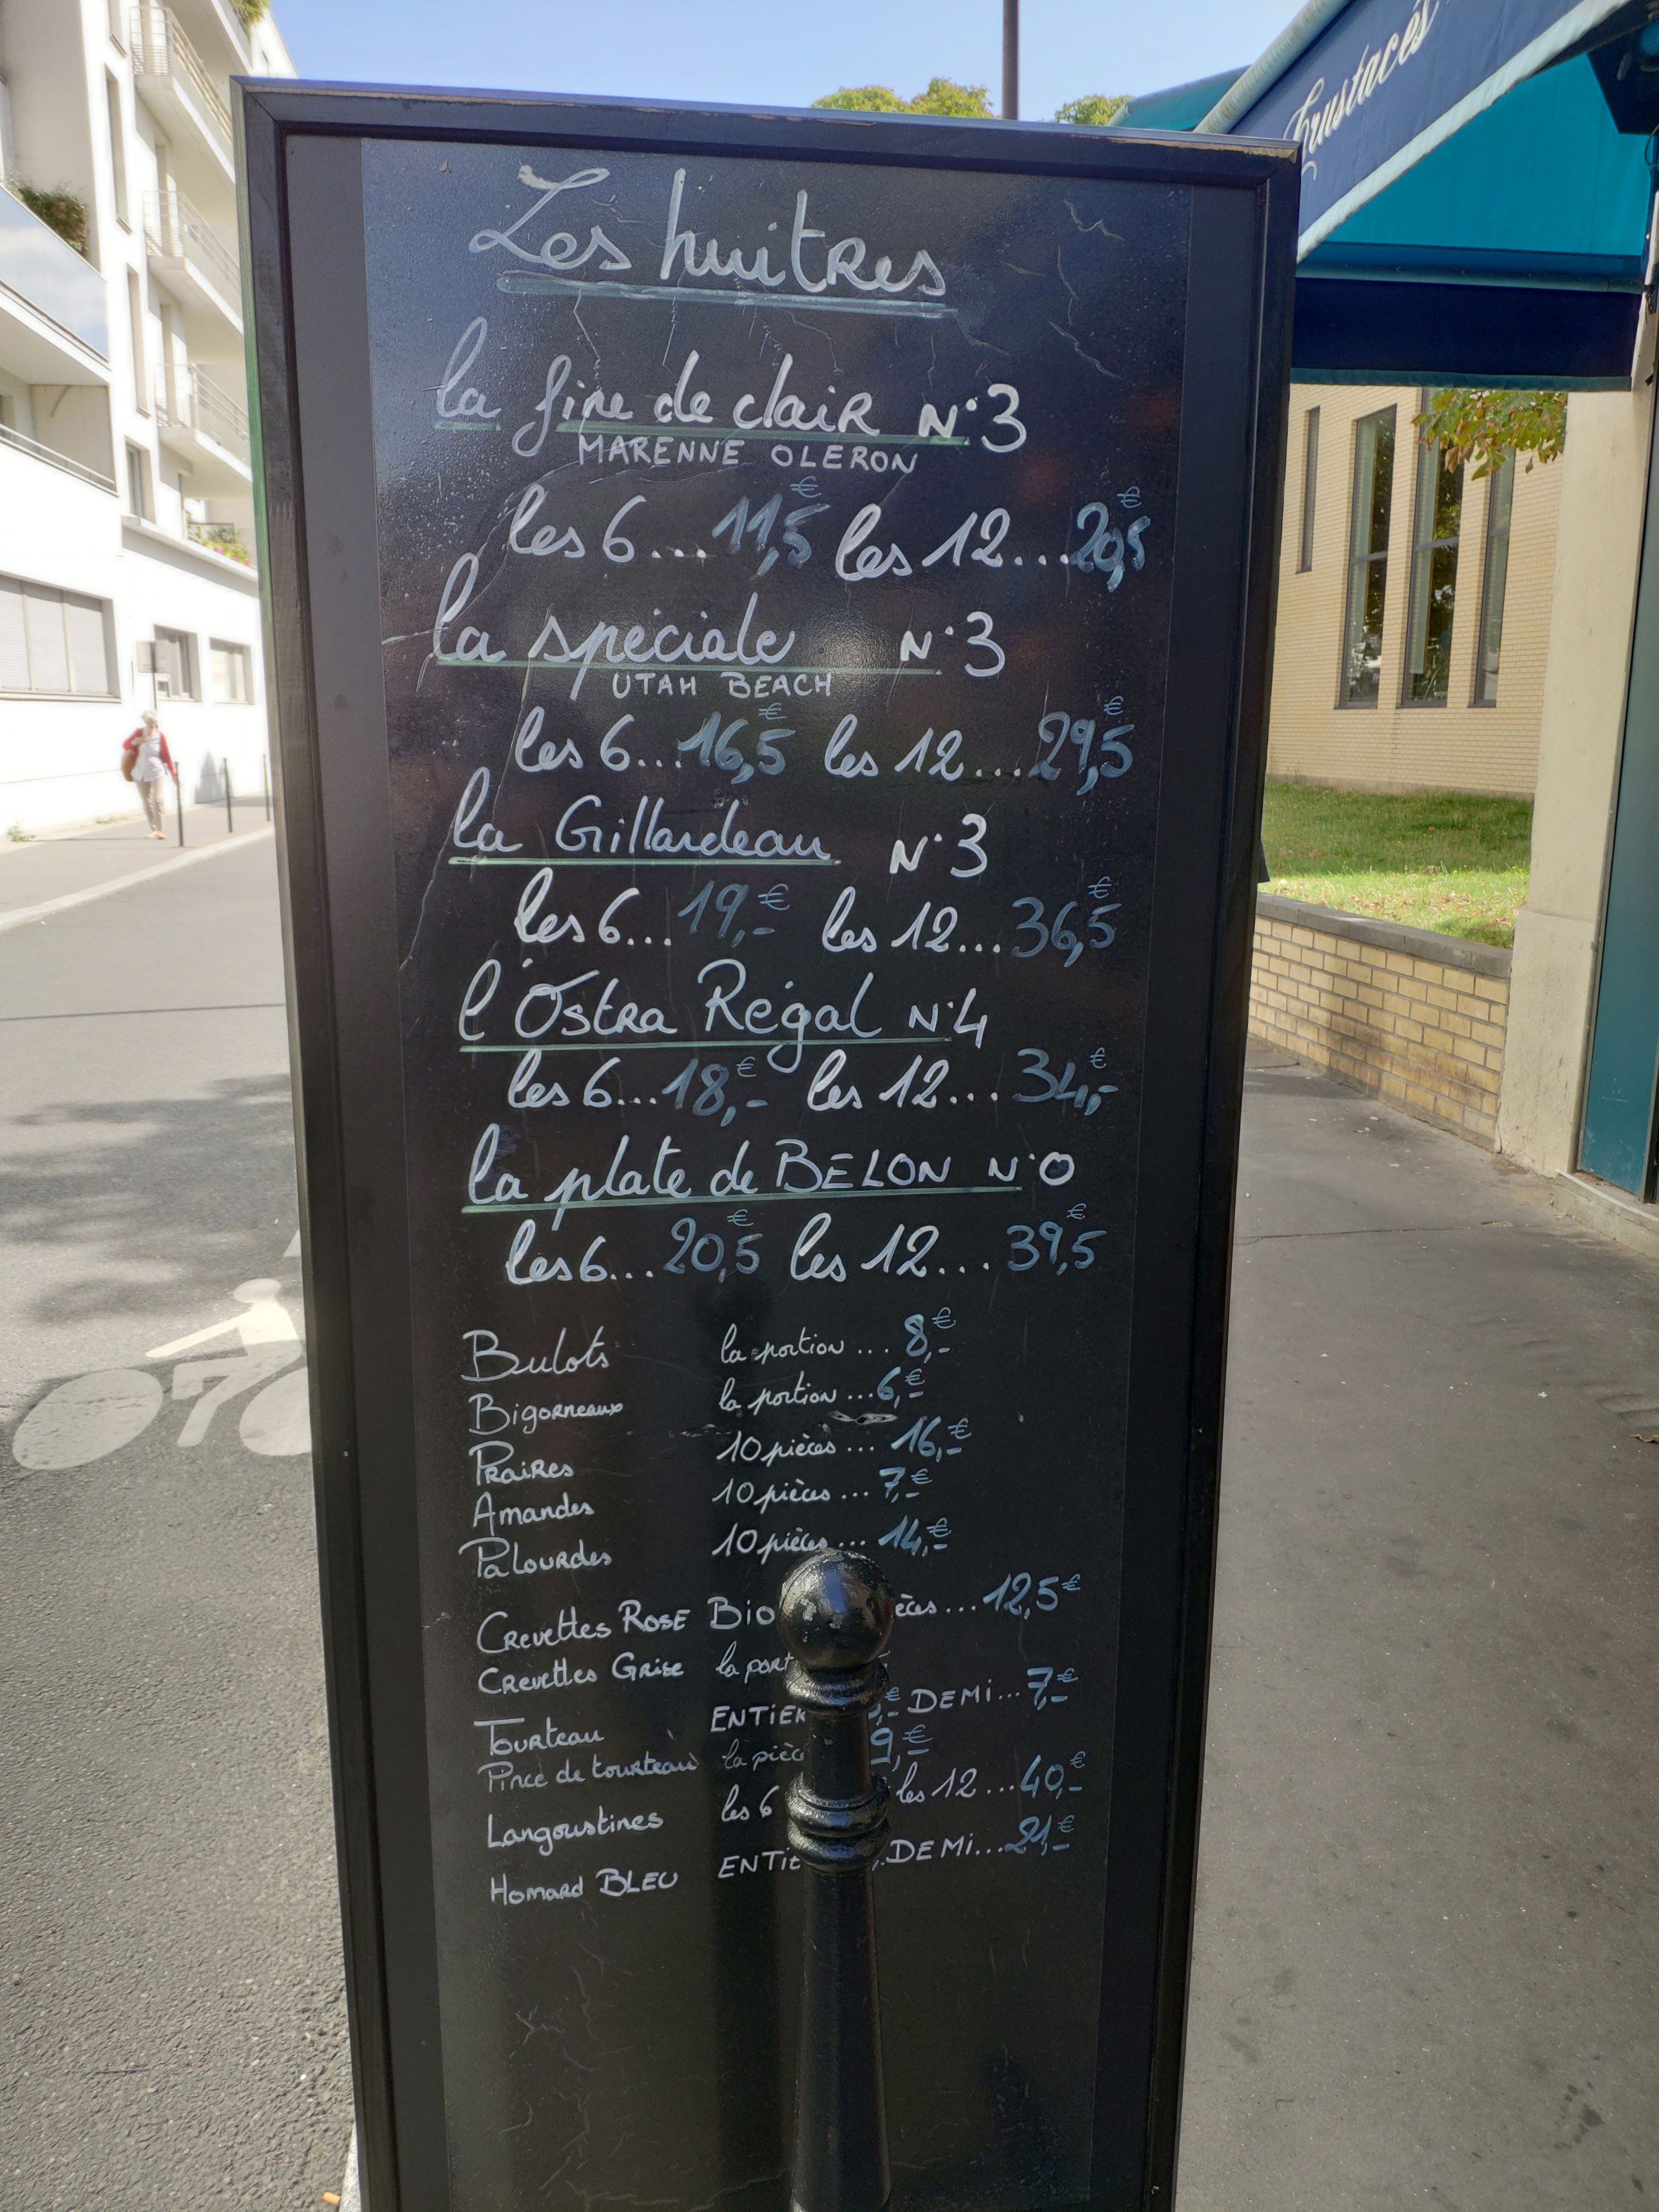 Crustacés
Les huitres
la fine de claiR N°3
MARENNE OLERON
les 6... 11,5€ les 12... 20,5€
la spéciale N°3
UTAH BEACH
les 6... 16,5€ les 12... 29,5€
la Gillardeau N°3
les 6... 19,-€ les 12... 36,5€
l'Ostra Régal N°4
les 6... 18,-€ les 12... 34,-€
la plate de BELON N°0
les 6... 20,5€ les 12... 39,5€
Bulots la portion ... 8,-€
Bigorneaux la portion ... 6,-€
Praires 10 pièces ... 16,-€
Amandes 10 pièces ... 7,-€
Palourdes 10 pièces ... 14,-€
Crevettes Rose Bio èces ... 12,5€
Crevettes Grise la port
Tourteau ENTIER ,-€ DEMI... 7,-€
Pince de tourteau la pièc 9,-€
Langoustines les 6 les 12 ... 40,-€
Homard BLEU ENTIE DEMI... 21,-€